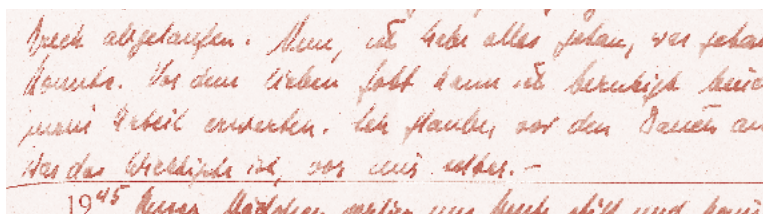 abgelaufen. Nun, ich habe alles getan, was getan
konnte. Vor dem lieben Gott kann ich beruhigt
mein Urteil erwarten. Ich glaube, vor den Bauern
Was das Wichtigste ist, vor mir selber. –
1945 Unser Mädchen uns heute still und